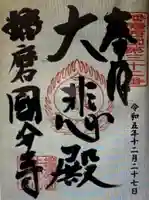 奉拝
令和五年十二月二十七日
大悲殿
播磨國分寺